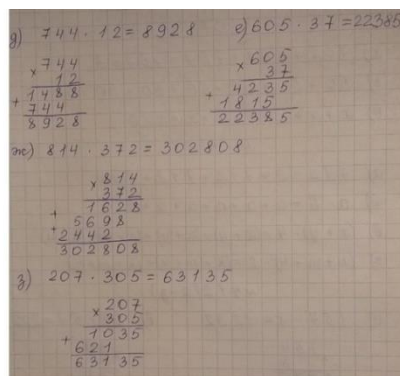 д) 744 · 12 = 8928
× 744
12
+ 1488
744
8928
е) 605 · 37 = 22385
× 605
37
+ 4235
1815
22385
ж) 814 · 372 = 302808
× 814
372
+ 1628
+ 5698
2442
302808
з) 207 · 305 = 63135
× 207
305
+ 1035
621
63135